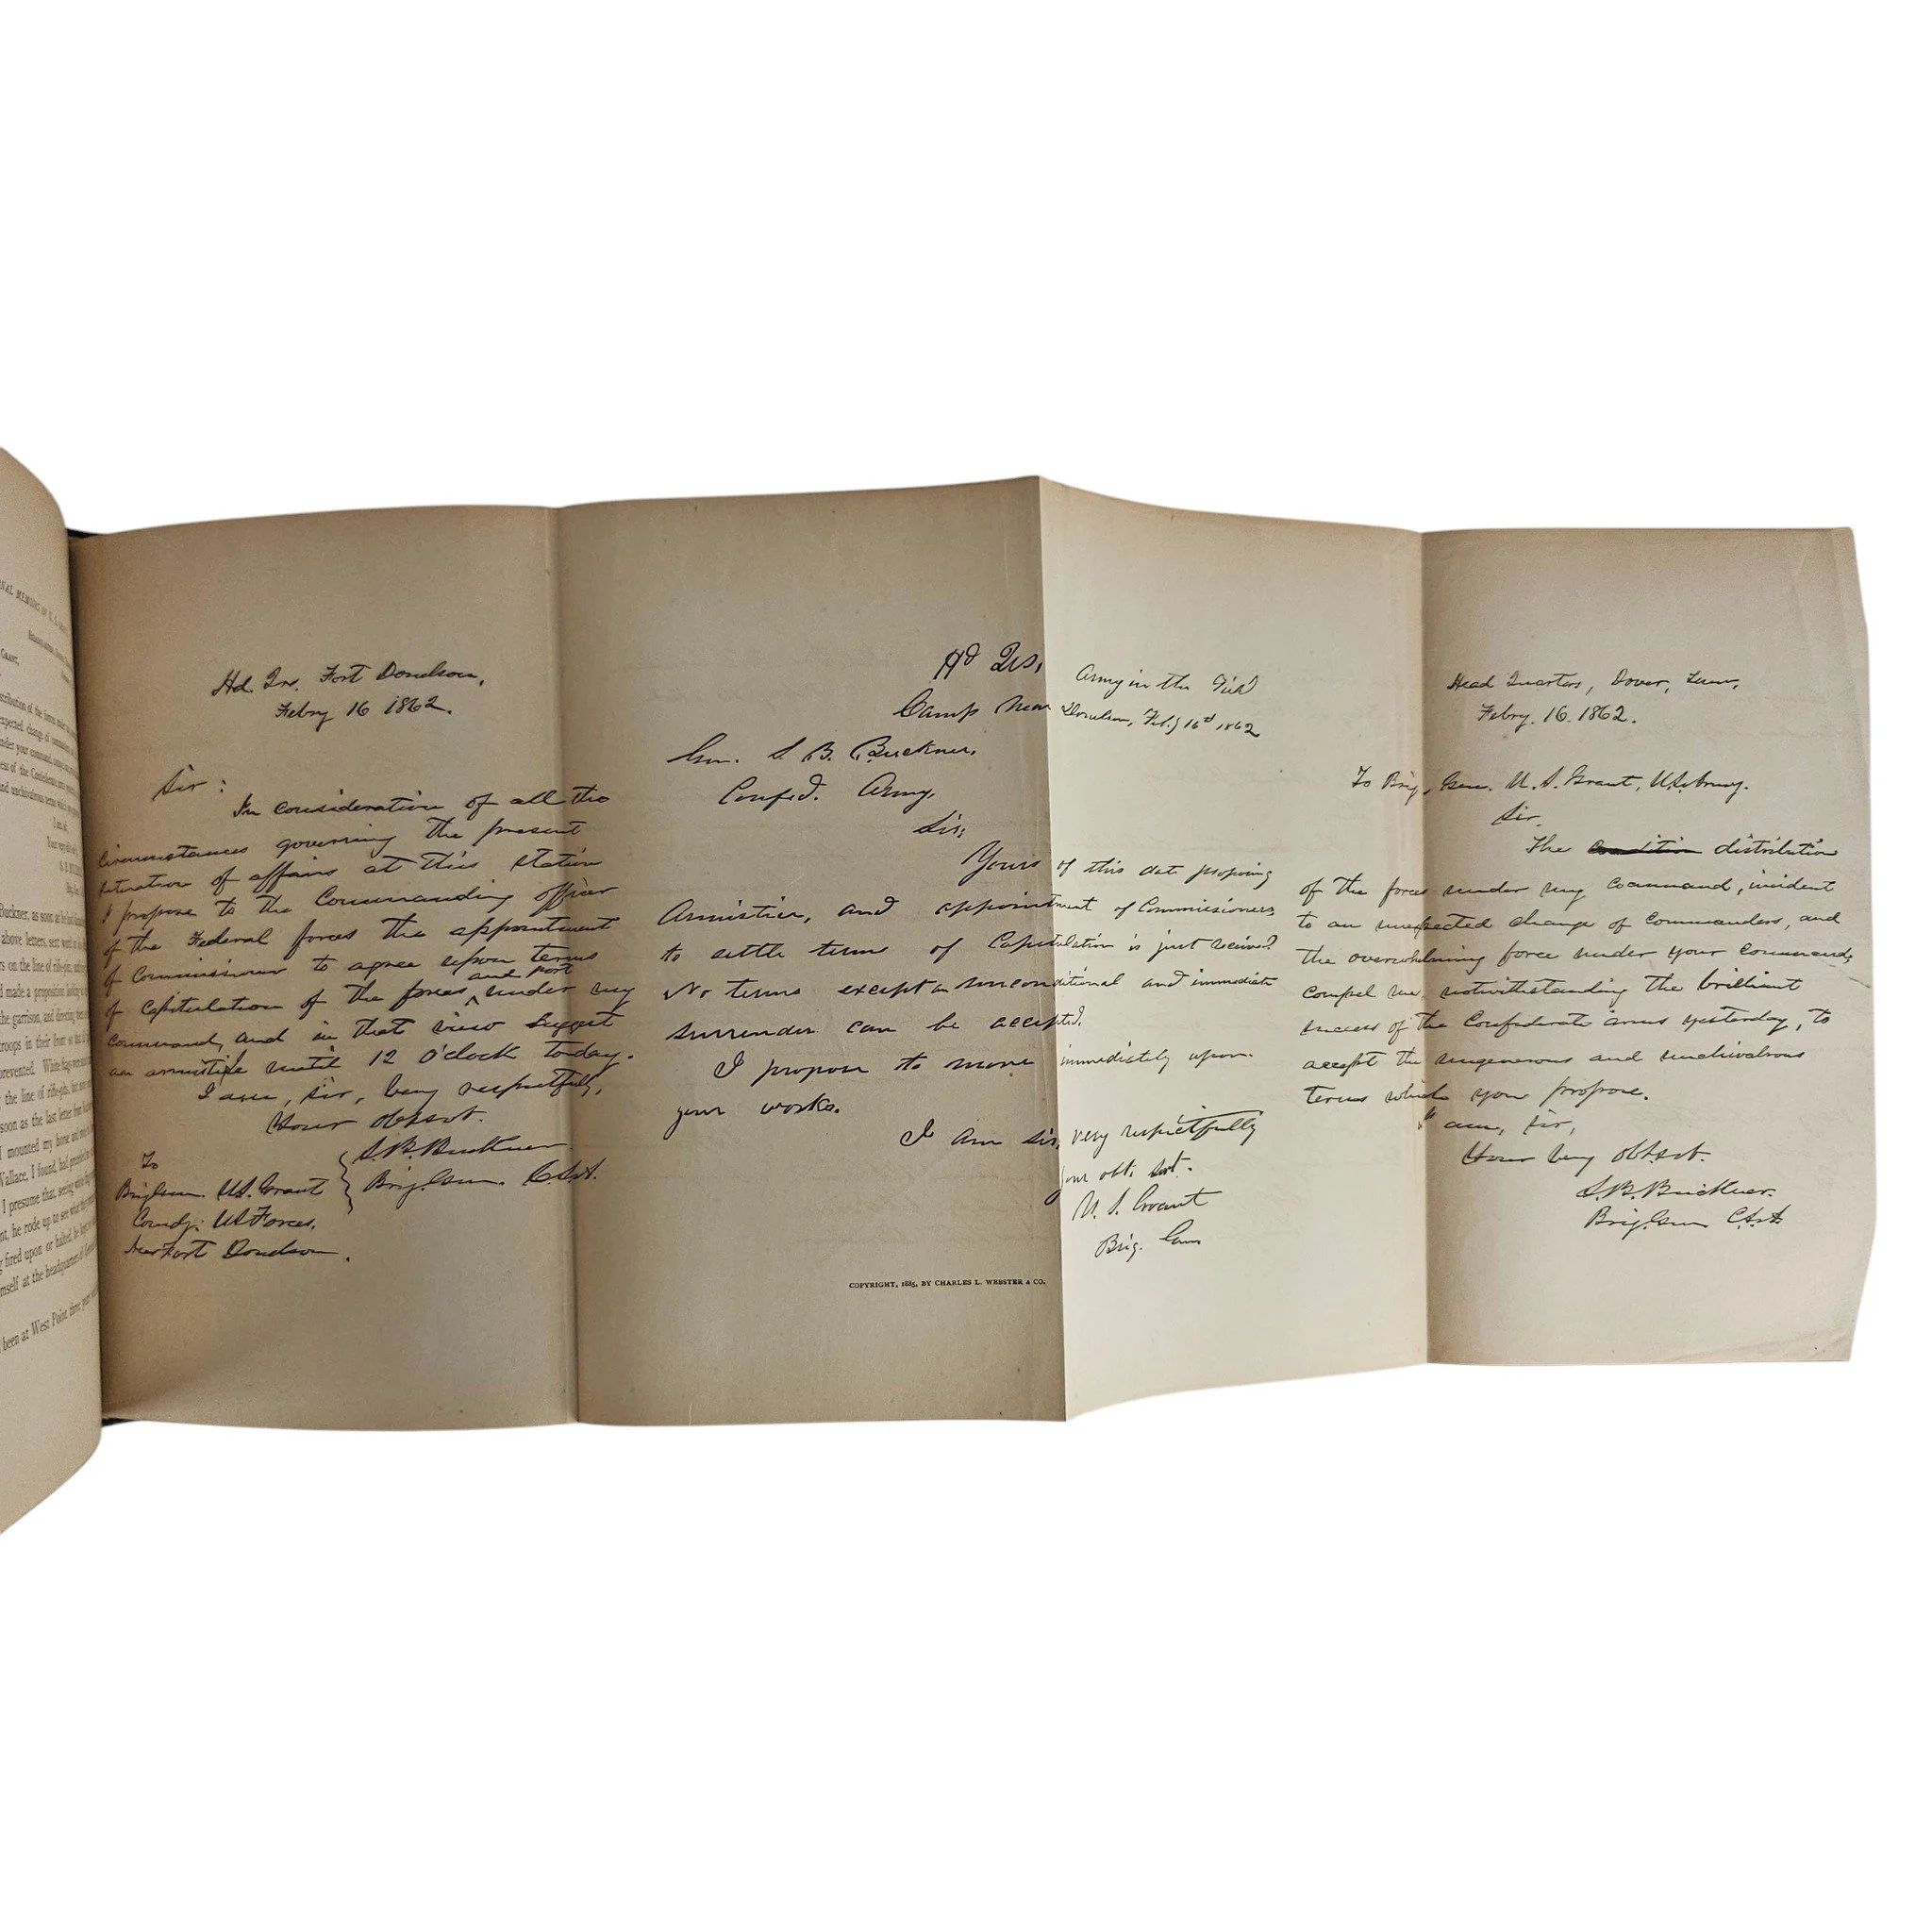 NAL MEMOIRS OF U. S. GRANT
GRANT,
stribution of the forces
expected change of commanders
nder your command,
ess of the Confederate arms
and unchivalrous terms which
I am, sir,
Your very
S. B.
Buckner, as soon as he had
above letters, sent word to
rs on the line of rifle-pits,
d made a proposition looking
the garrison, and directing
troops in their front so that
prevented. White flags were
the line of rifle-pits, but
soon as the last letter from
I mounted my horse and
Wallace, I found, had preceded
I presume that, seeing white flags
nt, he rode up to see what
g fired upon or halted, he
mself at the headquarters of
been at West Point three years
Hd. Qrs. Fort Donelson,
Febry 16 1862.
Sir:
In consideration of all the
circumstances governing the present
situation of affairs at this station
I propose to the Commanding officer
of the Federal forces the appointment
of Commissioners to agree upon terms
and post
of capitulation of the forces ^ under my
command, and in that view suggest
an armistice until 12 o'clock today.
I am, sir, very respectfully,
Your obt. svt.
S. B. Buckner
Brig. Gen. C.S.A.
To
Brig Gen. U.S. Grant
Comdg. US Forces,
Near Fort Donelson.
Hd Qrs, Army in the Field
Camp Near Donelson, Feb.y 16th 1862
Gen. S. B. Buckner,
Confed. Army,
Sir;
Yours of this date proposing
Armistice, and appointment of Commissioners
to settle terms of Capitulation is just received.
No terms except an unconditional and immediate
surrender can be accepted.
I propose to move immediately upon
your works.
I am sir, very respectfully
your obt. svt.
U. S. Grant
Brig. Gen
COPYRIGHT, 1885, BY CHARLES L. WEBSTER & CO.
Head Quarters, Dover, Tenn,
Febry. 16. 1862.
To Brig. Gen. U. S. Grant, U.S. Army.
Sir,
The condition distribution
of the forces under my command, incident
to an unexpected change of commanders, and
the overwhelming force under your command,
compel me, notwithstanding the brilliant
success of the Confederate arms yesterday, to
accept the ungenerous and unchivalrous
terms which you propose.
I am, sir,
Your very obt. svt.
S. B. Buckner.
Brig. Gen C.S.A